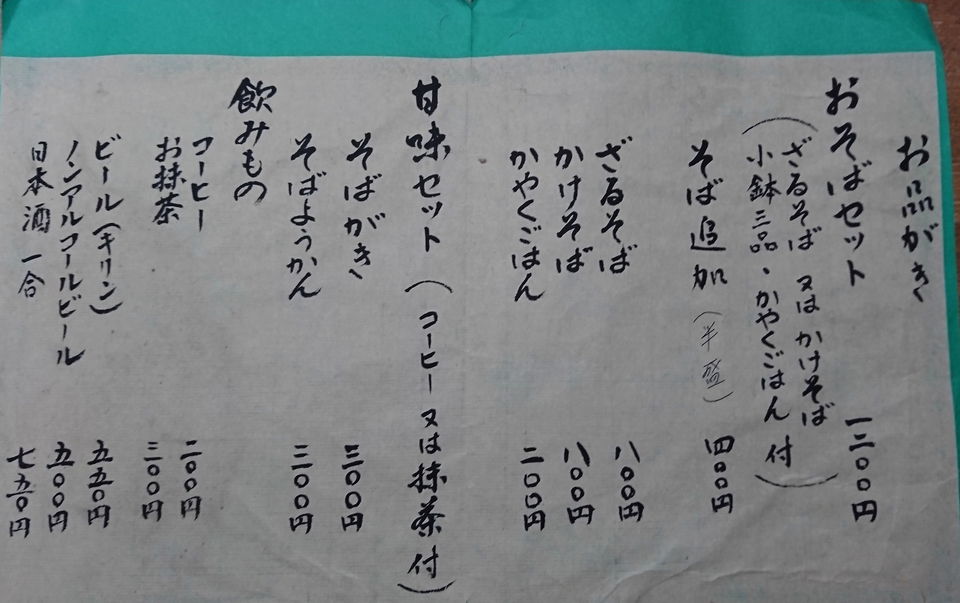 お品がき
おそばセット 一二〇〇円
(ざるそば 又は かけそば
小鉢三品・かやくごはん 付)
そば追加(半盛) 四〇〇円
ざるそば 八〇〇円
かけそば 八〇〇円
かやくごはん 二〇〇円
甘味セット(コーヒー又は抹茶付)
そばがき 三〇〇円
そばようかん 三〇〇円
飲みもの
コーヒー 二〇〇円
お抹茶 三〇〇円
ビール(キリン) 五五〇円
ノンアルコールビール 五〇〇円
日本酒 一合 七五〇円